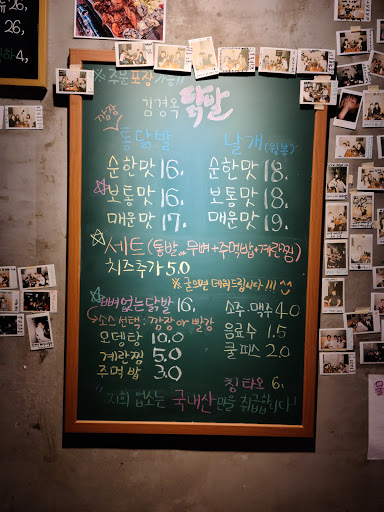 ※ 주문포장가능!!
김경옥 닭발
통닭발
순한맛 16.
보통맛 16.
매운맛 17.
날개(윙봉)
순한맛 18.
보통맛 18.
매운맛 19.
☆세트(통발or무뼈+주먹밥+계란찜)
치즈추가 5.0
※ 굳으면 데워드립니다!!!
☆뼈없는닭발 16.
소스선택: 간장 or 빨강
오뎅탕 10.0
계란찜 5.0
주먹밥 3.0
소주.맥주 4.0
음료수 1.5
쿨피스 2.0
칭타오 6.
"저희 업소는 국내산만을 취급합니다!